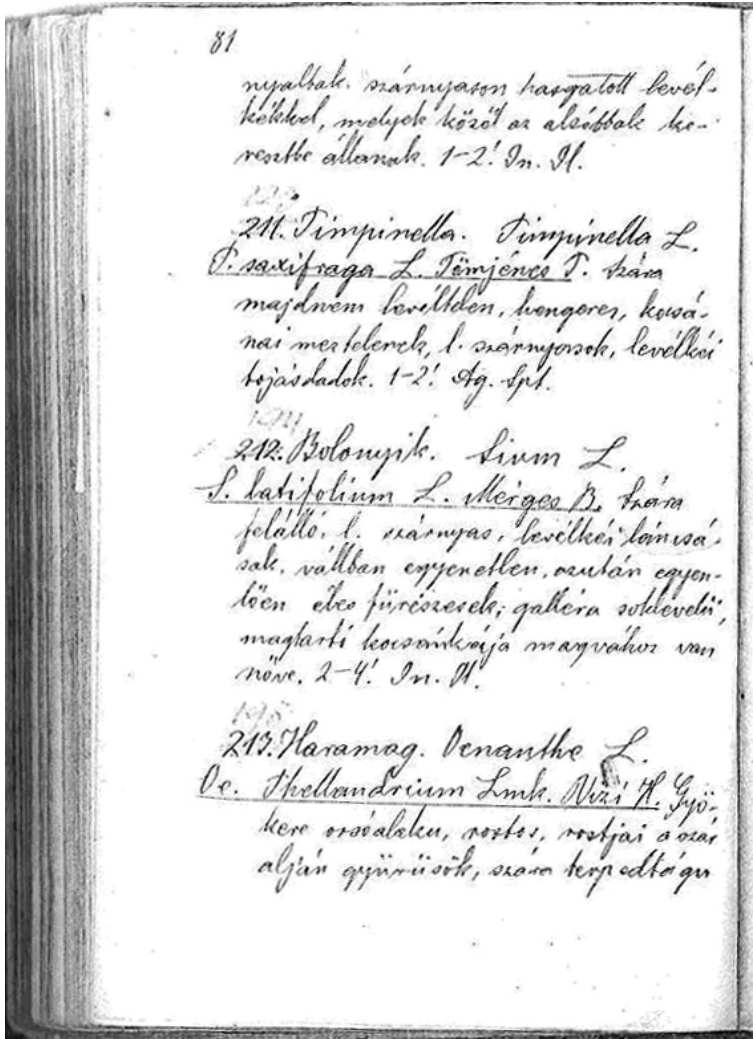 81
nyaltak. szárnyason hasgatott levél-
kékkel, melyek közöt az alsóbbak ke-
resztbe állanak. 1-2! In. Jl.
211. Pimpinella. Pimpinella L.
P. saxifraga L. Tömjénes P. Szára
majdnem levéltelen, hengeres, kocsá-
nai meztelenek, l. szárnyasok, levélkéi
tojásdadok. 1-2! Ag. Spt.
194
212. Bolonyik. Sium L.
S. latifolium L. Mérges B. Szára
felálló, l. szárnyas, levélkéi láncsá-
sak, vállban egyenetlen, azután egyen-
lően éles fürészesek; galléra soklevelü,
magtartó kocsánkája magvához van
növe. 2-4! In. Jl.
195
213. Haramag. Oenanthe L.
Oe. Phellandrium Lmk. Vizi H. Gyö-
kere orsóalaku, rostos, rostjai a szár
alján gyürüsök, szára terpedtágu